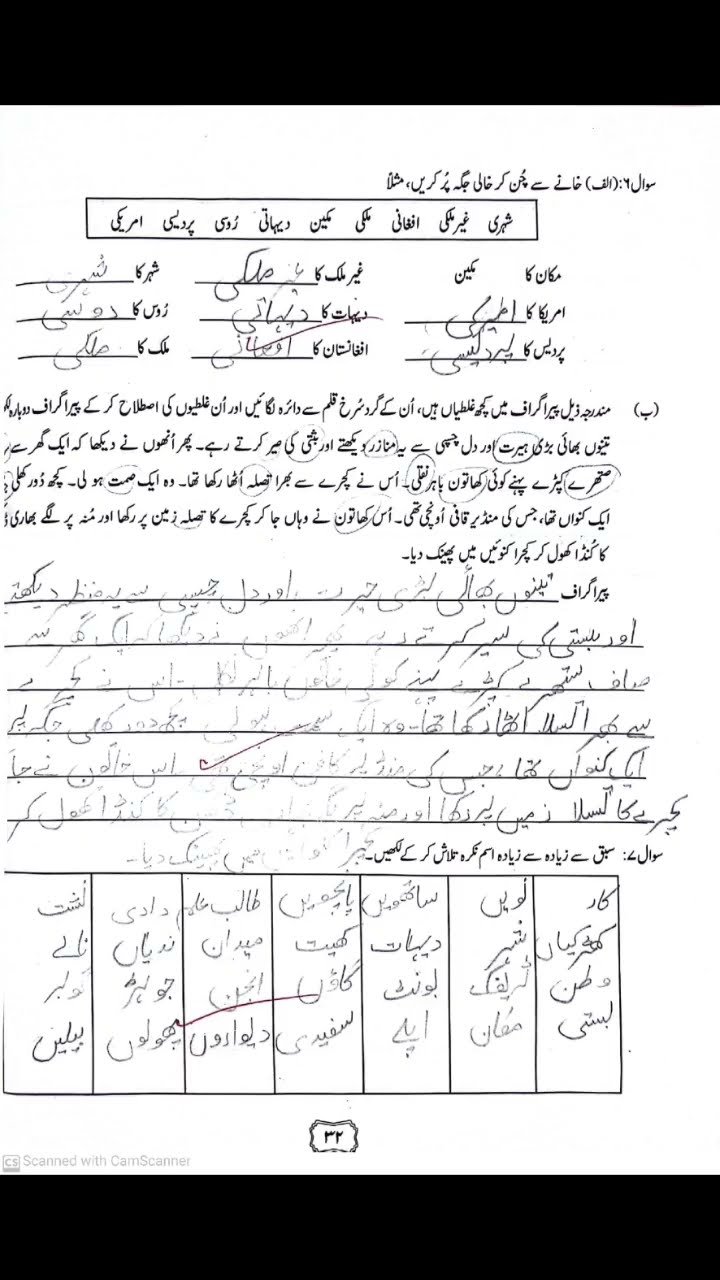 سوال۶:(الف) خانے سے چُن کر خالی جگہ پُر کریں، مثلاً
شہری غیرملکی افغانی ملکی مکین دیہاتی رُوسی پردیسی امریکی
مکان کا مکین غیر ملک کا غیر ملکی شہر کا شہری
امریکا کا امریکی دیہات کا دیہاتی رُوس کا روسی
پردیس کا پردیسی افغانستان کا افغانی ملک کا ملکی
(ب) مندرجہ ذیل پیراگراف میں کچھ غلطیاں ہیں، اُن کے گرد سُرخ قلم سے دائرہ لگائیں اور اُن غلطیوں کی اصطلاح کر کے پیراگراف دوبارہ لکھ
تینوں بھائی بڑی ہیرت اور دل چسپی سے یہ منازر دیکھتے اور بثتی کی صیر کرتے رہے۔ پھر اُنھوں نے دیکھا کہ ایک گھر سے
ستھرے کپڑے پہنے کوئی کھاتون باہر نقلی۔ اُس نے کچرے سے بھرا تصلہ اُٹھا رکھا تھا۔ وہ ایک صمت ہو لی۔ کچھ دُور کھلی
ایک کنواں تھا، جس کی منڈیر قافی اُونچی تھی۔ اُس کھاتون نے وہاں جا کر کچرے کا تصلہ زمین پر رکھا اور مُنہ پر لگے بھاری
کا کُنڈا کھول کر کچرا کنوئیں میں پھینک دیا۔
پیراگراف تینوں بھائی بڑی حیرت اور دل چسپی سے یہ منظر دیکھتے
اور بستی کی سیر کرتے رہے پھر انھوں نے دیکھا کہ ایک گھر سے
صاف ستھرے کپڑے پہنے کوئی خاتون باہر نکلی۔ اس نے کچرے
سے بھرا تسلا اٹھا رکھا تھا۔ وہ ایک سمت ہولی کچھ دور کھلی جگہ پر
ایک کنواں تھا، جس کی منڈیر کافی اونچی تھی۔ اس خاتون نے جا
کچرے کا تسلا زمین پر رکھا اور منہ پر لگے کا کنڈا کھول کر
کچرا میں پھینک دیا۔
سوال۷: سبق سے زیادہ سے زیادہ اسم نکرہ تلاش کر کے لکھیں۔
کار نویں ساتھویں پانچویں طالب علم دادی
کھڑکیاں شہر دیہات کھیت میدان ندیاں نالے
وطن ٹریفک یونٹ گاؤں انجن جوہڑ گوبر
بستی مکان اپلے سفیدی دیواروں پھولوں بیلیں
۳۲
CS Scanned with CamScanner